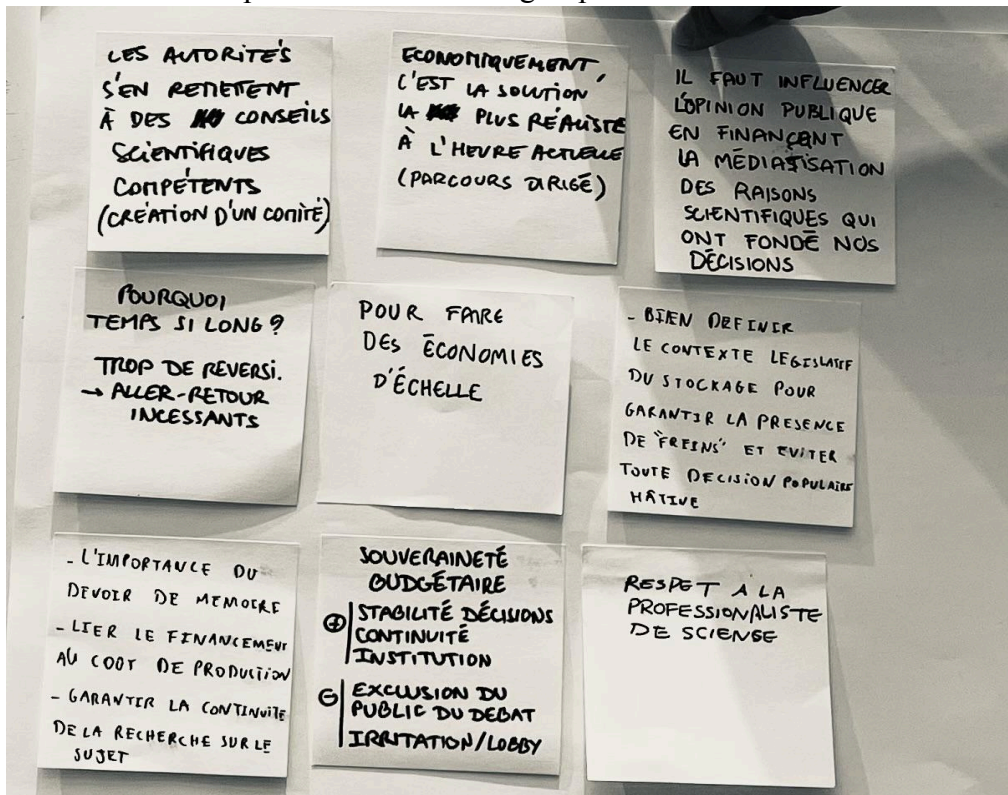 LES AUTORITÉS
S'EN REMETTENT
À DES CONSEILS
SCIENTIFIQUES
COMPÉTENTS
(CRÉATION D'UN COMITÉ)
ECONOMIQUEMENT,
C'EST LA SOLUTION
LA PLUS RÉALISTE
À L'HEURE ACTUELLE
(PARCOURS DIRIGÉ)
IL FAUT INFLUENCER
L'OPINION PUBLIQUE
EN FINANÇANT
LA MÉDIATISATION
DES RAISONS
SCIENTIFIQUES QUI
ONT FONDÉ NOS
DÉCISIONS
POURQUOI
TEMPS SI LONG?
TROP DE REVERSI.
→ ALLER-RETOUR
INCESSANTS
POUR FAIRE
DES ÉCONOMIES
D'ÉCHELLE
- BIEN DEFINIR
LE CONTEXTE LEGISLATIF
DU STOCKAGE POUR
GARANTIR LA PRESENCE
DE "FREINS" ET EVITER
TOUTE DECISION POPULAIRE
HÂTIVE
- L'IMPORTANCE DU
DEVOIR DE MEMOIRE
- LIER LE FINANCEMENT
AU COOT DE PRODUCTION
- GARANTIR LA CONTINUITE
DE LA RECHERCHE SUR LE
SUJET
SOUVERAINETÉ
BUDGÉTAIRE
⊕ STABILITÉ DÉCISIONS
CONTINUITÉ
INSTITUTION
⊖ EXCLUSION DU
PUBLIC DU DEBAT
IRRITATION/LOBBY
RESPET A LA
PROFESSIONALISTE
DE SCIENSE